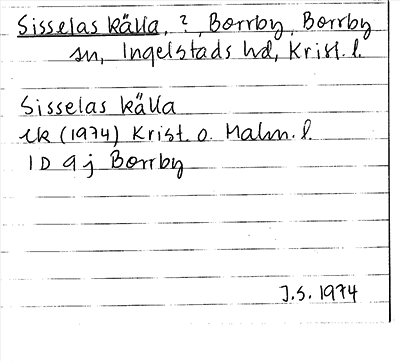 Sisselas källa, ?, Borrby, Borrby
sn, Ingelstads hd, Krist. l.
Sisselas källa
ek (1974) Krist. o. Malm. l.
1D 9j Borrby
J.S. 1974